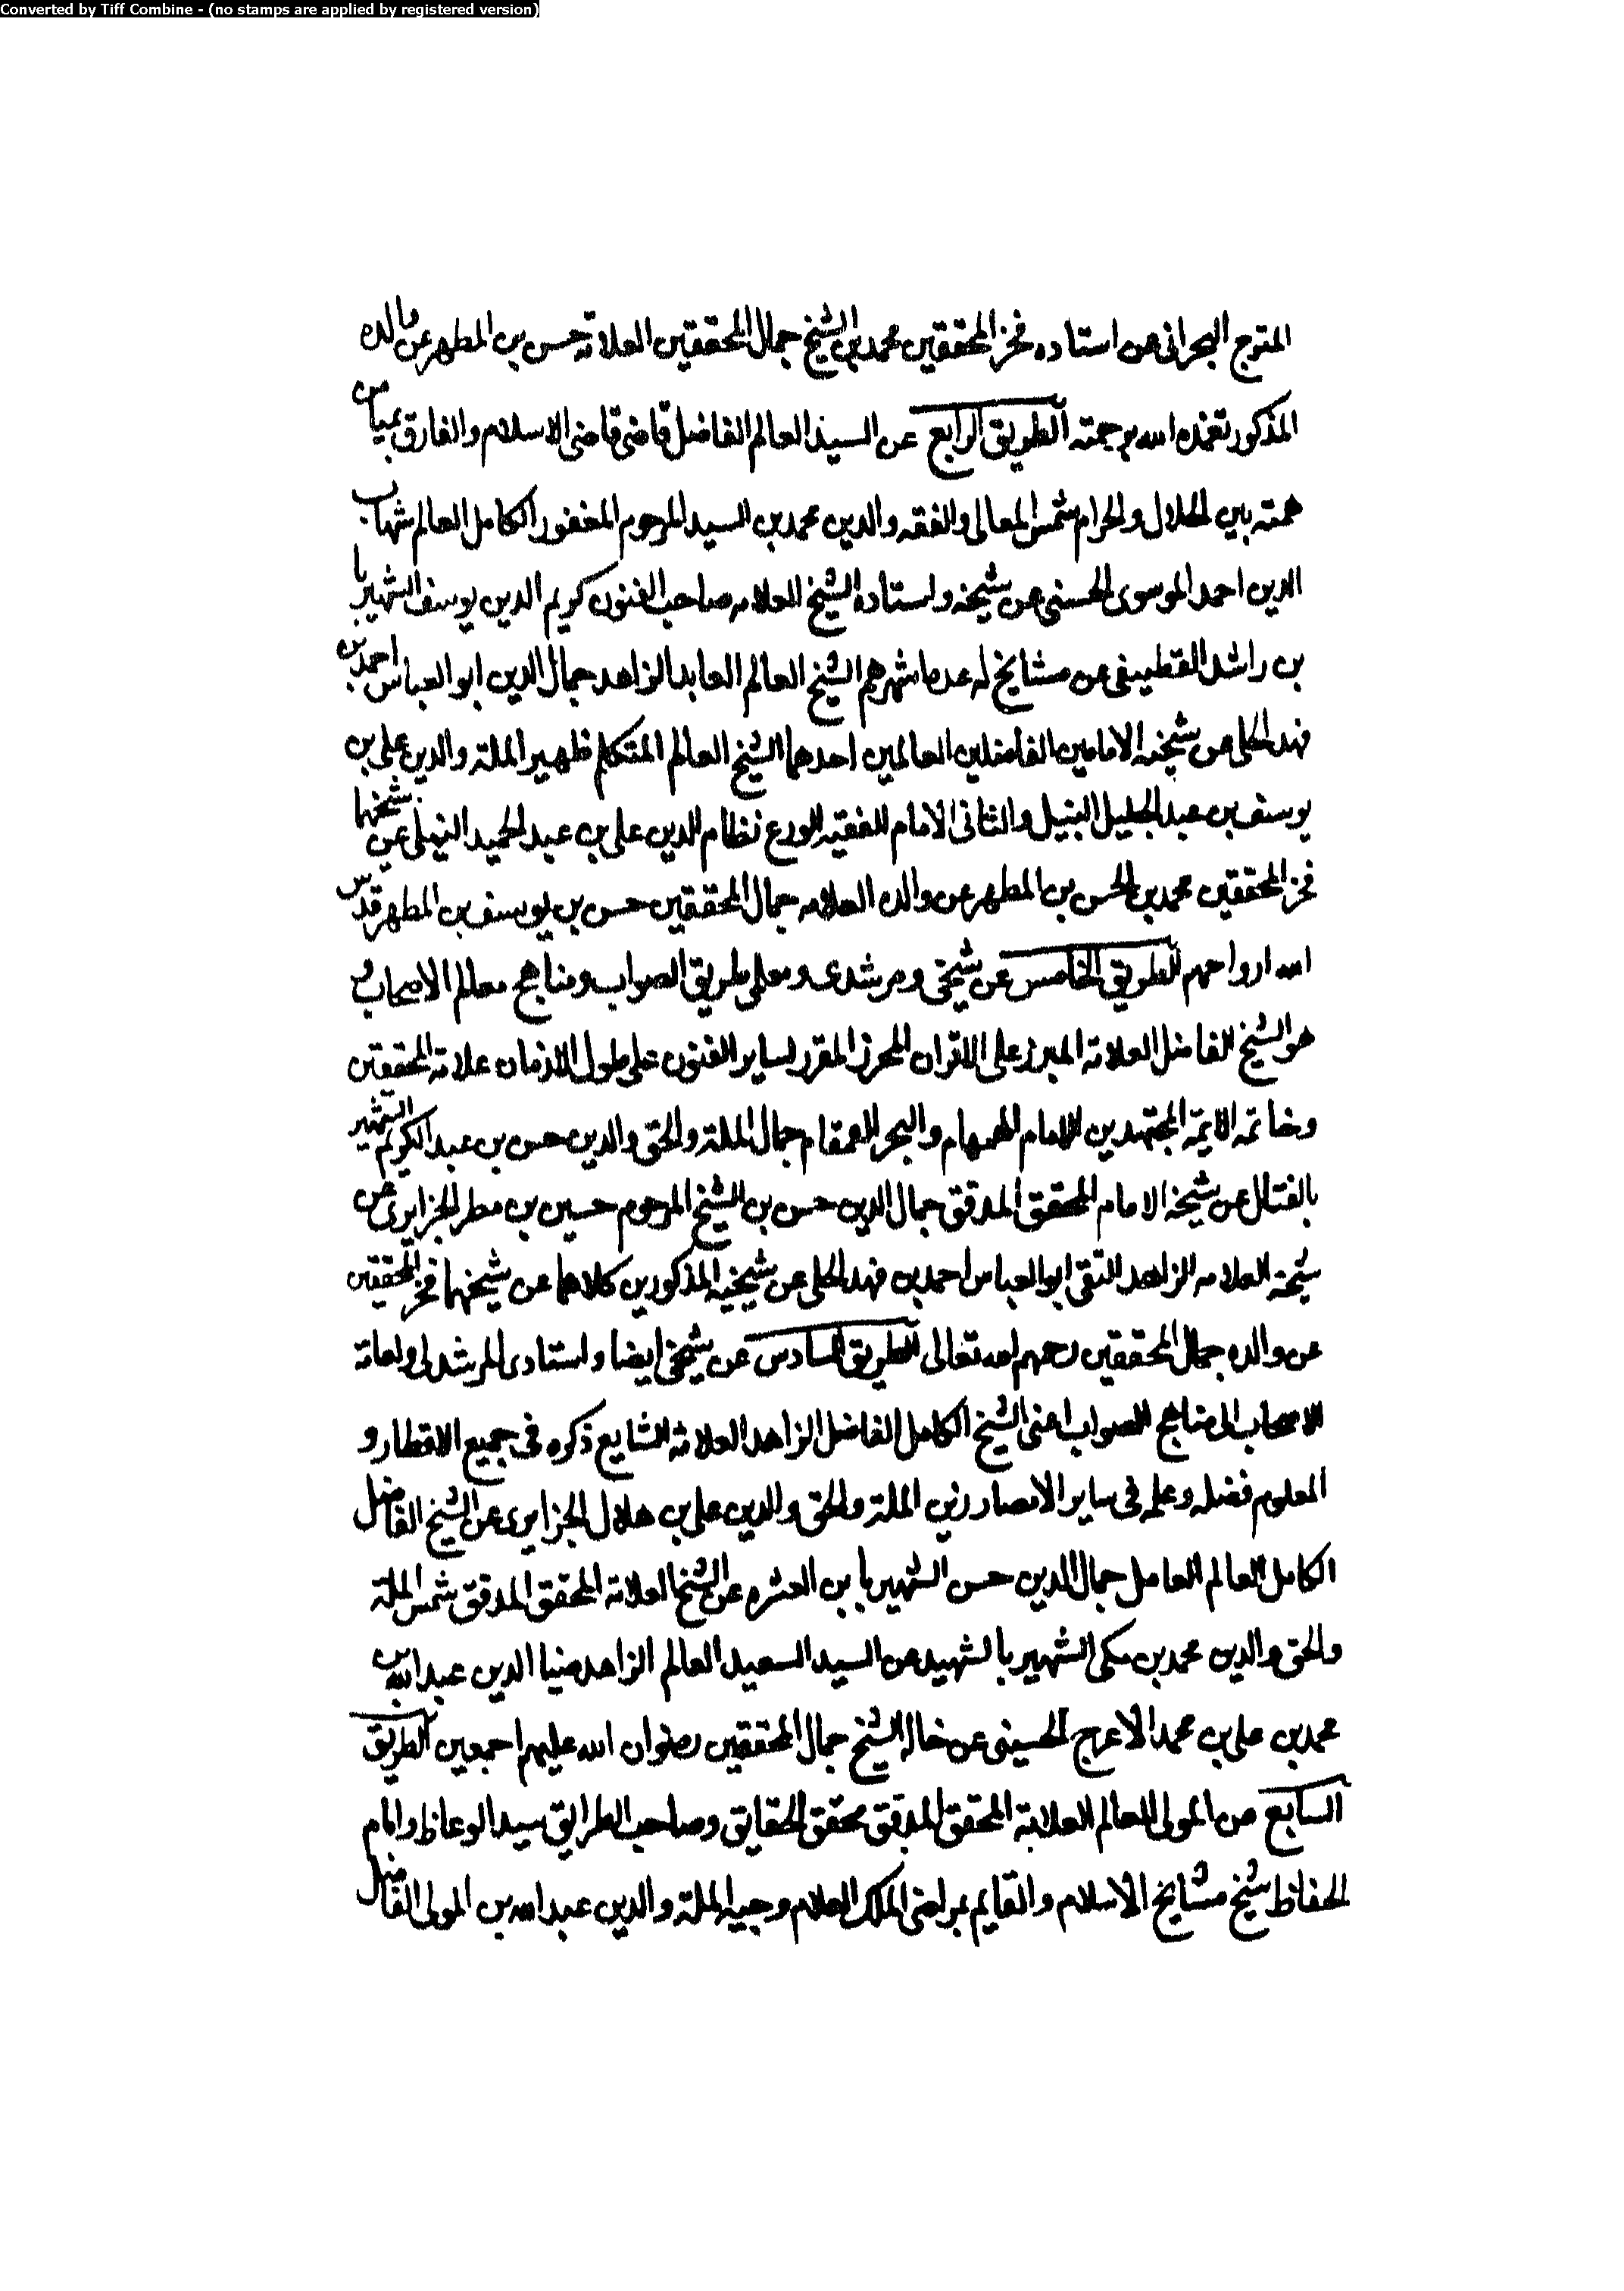 Converted by Tiff Combine - (no stamps are applied by registered version)
المتوج البحرانى عن استاده فخر المحققين محمد بن الشيخ جمال المحققين العلامة حسن بن المطهر عن والده
المذكور تغمده الله برحمته الطريق الرابع عن السيد العالم الفاضل قاضى قاضى الاسلام والفارق بميامن
همته بين الحلال والحرام شمس المعالى والفقه والدين محمد بن السيد المرحوم المغفور الكامل العالم شهاب
الدين احمد الموسوى الحسنى عن شيخه واستاده الشيخ العلامه صاحب الفنون كريم الدين يوسف الشهير با
بن راشد القطيفى عن مشايخ له عده اشهرهم الشيخ العالم العابد الزاهد جمال الدين ابو العباس احمد بن
فهد الحلى عن شيخه الامامين الفاضلين العالمين احدهما الشيخ العالم المتكلم ظهير الملة والدين على بن
يوسف بن عبد الجليل النيل والثانى الامام الفقيه الورع نظام الدين على بن عبد الحميد النيلى عن شيخهما
فخر المحققين محمد بن الحسن بن المطهر عن والده العلامه جمال المحققين حسن بن يوسف بن المطهر قدس
الله ارواحهم الطريق الخامس عن شيخى ومرشدى ومعلمى طريق الصواب ومناهج معالم الاصحاب و
هو الشيخ الفاضل العلامة المبرز على الاقران المحرز المقرر لساير الفنون على طول الازمان علامة المحققين
وخاتمه الايمه المجتهدين الامام الهمهام والبحر القمقام جمال الملة والحق والدين حسن بن عبد الكريم الشهير
بالفتال عن شيخه الامام المحقق المدقق جمال الدين حسن بن الشيخ المرحوم حسين بن مطر الجزايرى عن
شيخه العلامه الزاهد التقى ابو العباس احمد بن فهد الحلى عن شيخيه المذكورين كلاهما عن شيخهما فخر المحققين
عن والده جمال المحققين رحمهم الله تعالى الطريق السادس عن شيخى ايضا واستادى المرشد لى ولعامة
الاصحاب الى مناهج الصواب اعنى الشيخ الكامل الفاضل الزاهد العلامة الشايع ذكره فى جميع الاقطار و
المعلوم فضله وعلمه فى ساير الامصار زين الملة والحق والدين على بن هلال الجزايرى عن الشيخ الفاضل
الكامل العالم العامل جمال الدين حسن الشهير بابن العشره عن الشيخ العلامة المحقق المدقق شمس الملة
والحق والدين محمد بن مكى الشهير بالشهيد عن السيد السعيد العالم الزاهد ضيا الدين عبد الله بن
محمد بن على بن محمد الاعرج الحسينى عن خاله الشيخ جمال المحققين رضوان الله عليهم اجمعين الطريق
السابع عن المولى العالم العلامة المحقق المدقق محقق الحقايق وصاحب الطرايق سيد الوعاظ وامام
الحفاظ شيخ مشايخ الاسلام والقايم بمراضى الملك العلام وجيه الملة والدين عبد الله بن المولى الفاضل